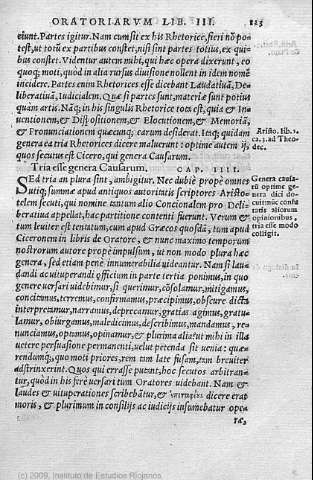 ORATORIARVM LIB. III. 223
eiunt. Partes igitur. Nam cum sit ex his Rhetorice, fieri nō po
test, ut totū ex partibus constet, nisi sint partes totius, ex qui
bus constet. Videntur autem mihi, qui hæc opera dixerunt, eo
quoq; moti, quod in alia rursus diuisione nollent in idem nomē
incidere. Partes enim Rhetorices esse dicebant Laudatiuā, De
liberatiuā, Iudicialem. Quæ si partes sunt, materiæ sunt potius
quàm artis. Nāq; in his singulis Rhetorice tota est, quia & In-
uentionem, & Dispositionem, & Elocutionem, & Memoriā,
& Pronunciationem quæcunq; earum desiderat. Itaq; quidam
genera ea tria Rhetorices dicere maluerunt: optime autem ij,
quos secutus est Cicero, qui genera Causarum.
Aristo. lib. 1.
c. 1. ad Theo-
dec.
Tria esse genera Causarum. CAP. IIII.
SEd tria an plura sint, ambigitur. Nec dubiè propè omnes
utiq; summæ apud antiquos autoritatis scriptores Aristo
telem secuti, qui nomine tantum alio Concionalem pro Deli-
beratiua appellat, hac partitione contenti fuerunt. Verum &
tum leuiter est tentatum, cum apud Græcos quosdā, tum apud
Ciceronem in libris de Oratore, & nunc maximo temporum
nostrorum autore propè impulsum, ut non modo plura hæc
genera, sed etiam pene innumerabilia uideantur. Nam si lau-
dandi ac uituperandi officium in parte tertia ponimus, in quo
genere uersari uidebimur, si querimur, cōsolamur, mitigamus,
concitamus, terremus, confirmamus, præcipimus, obscure dicta
interpretamur, narramus, deprecamur, gratias agimus, gratu-
lamur, obiurgamus, maledicimus, describimus, mandamus, re
nunciamus, optamus, opinamur, & plurima alia? ut mihi in illa
uetere persuasione permanenti, uelut petenda sit uenia: quæ-
rendumq; quo moti priores, rem tam late fusam, tam breuiter
adstrinxerint. Quos qui errasse putant, hoc secutos arbitran-
tur, quòd in his ferè uersari tum Oratores uidebant. Nam &
laudes & uituperationes scribebātur, & dicere erat
moris, & plurimum in consilijs ac iudicijs insumebatur ope-
ræ,
Genera causa-
rū optime ge-
nera dici do-
cet
opinionibus,
tria esse modo
colligit.
(c) 2009, Instituto de Estudios Riojanos